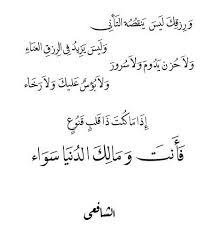 وَرِزقُكَ لَيسَ يُنقِصُهُ التَأَنّي
وَلَيسَ يَزيدُ في الرِزقِ العَناءِ
وَلا حُزنٌ يَدومُ وَلا سُرورٌ
وَلا بُؤسٌ عَلَيكَ وَلا رَخاءُ
إِذا ما كُنتَ ذا قَلبٍ قَنوعٍ
فَأَنتَ وَمالِكُ الدُنيا سَواءُ
الشافعي